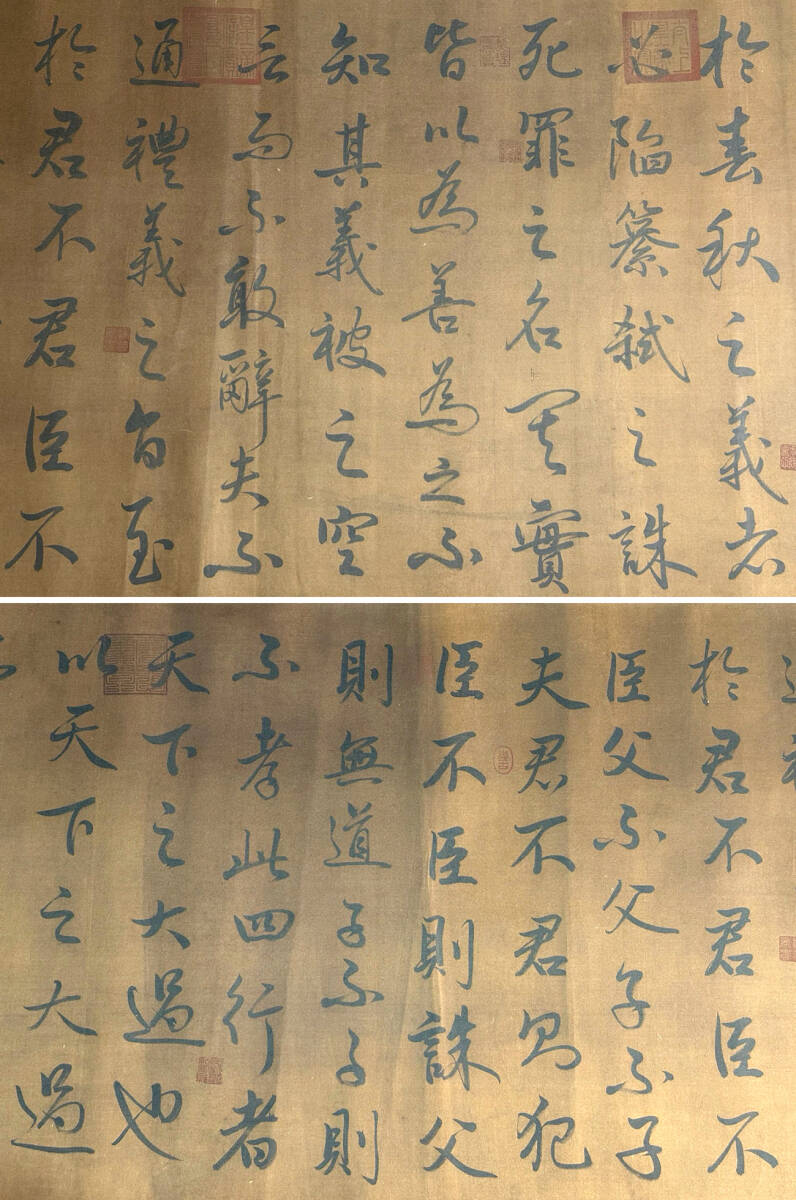 於春秋之義者
必陷篡弒之誅
死罪之名其實
皆以為善為之不
知其義被之空
言而不敢辭夫不
通禮義之旨至
於君不君臣不
於君不君臣不
臣父不父子不子
夫君不君則犯
臣不臣則誅父
則無道子不子則
不孝此四行者
天下之大過也
以天下之大過